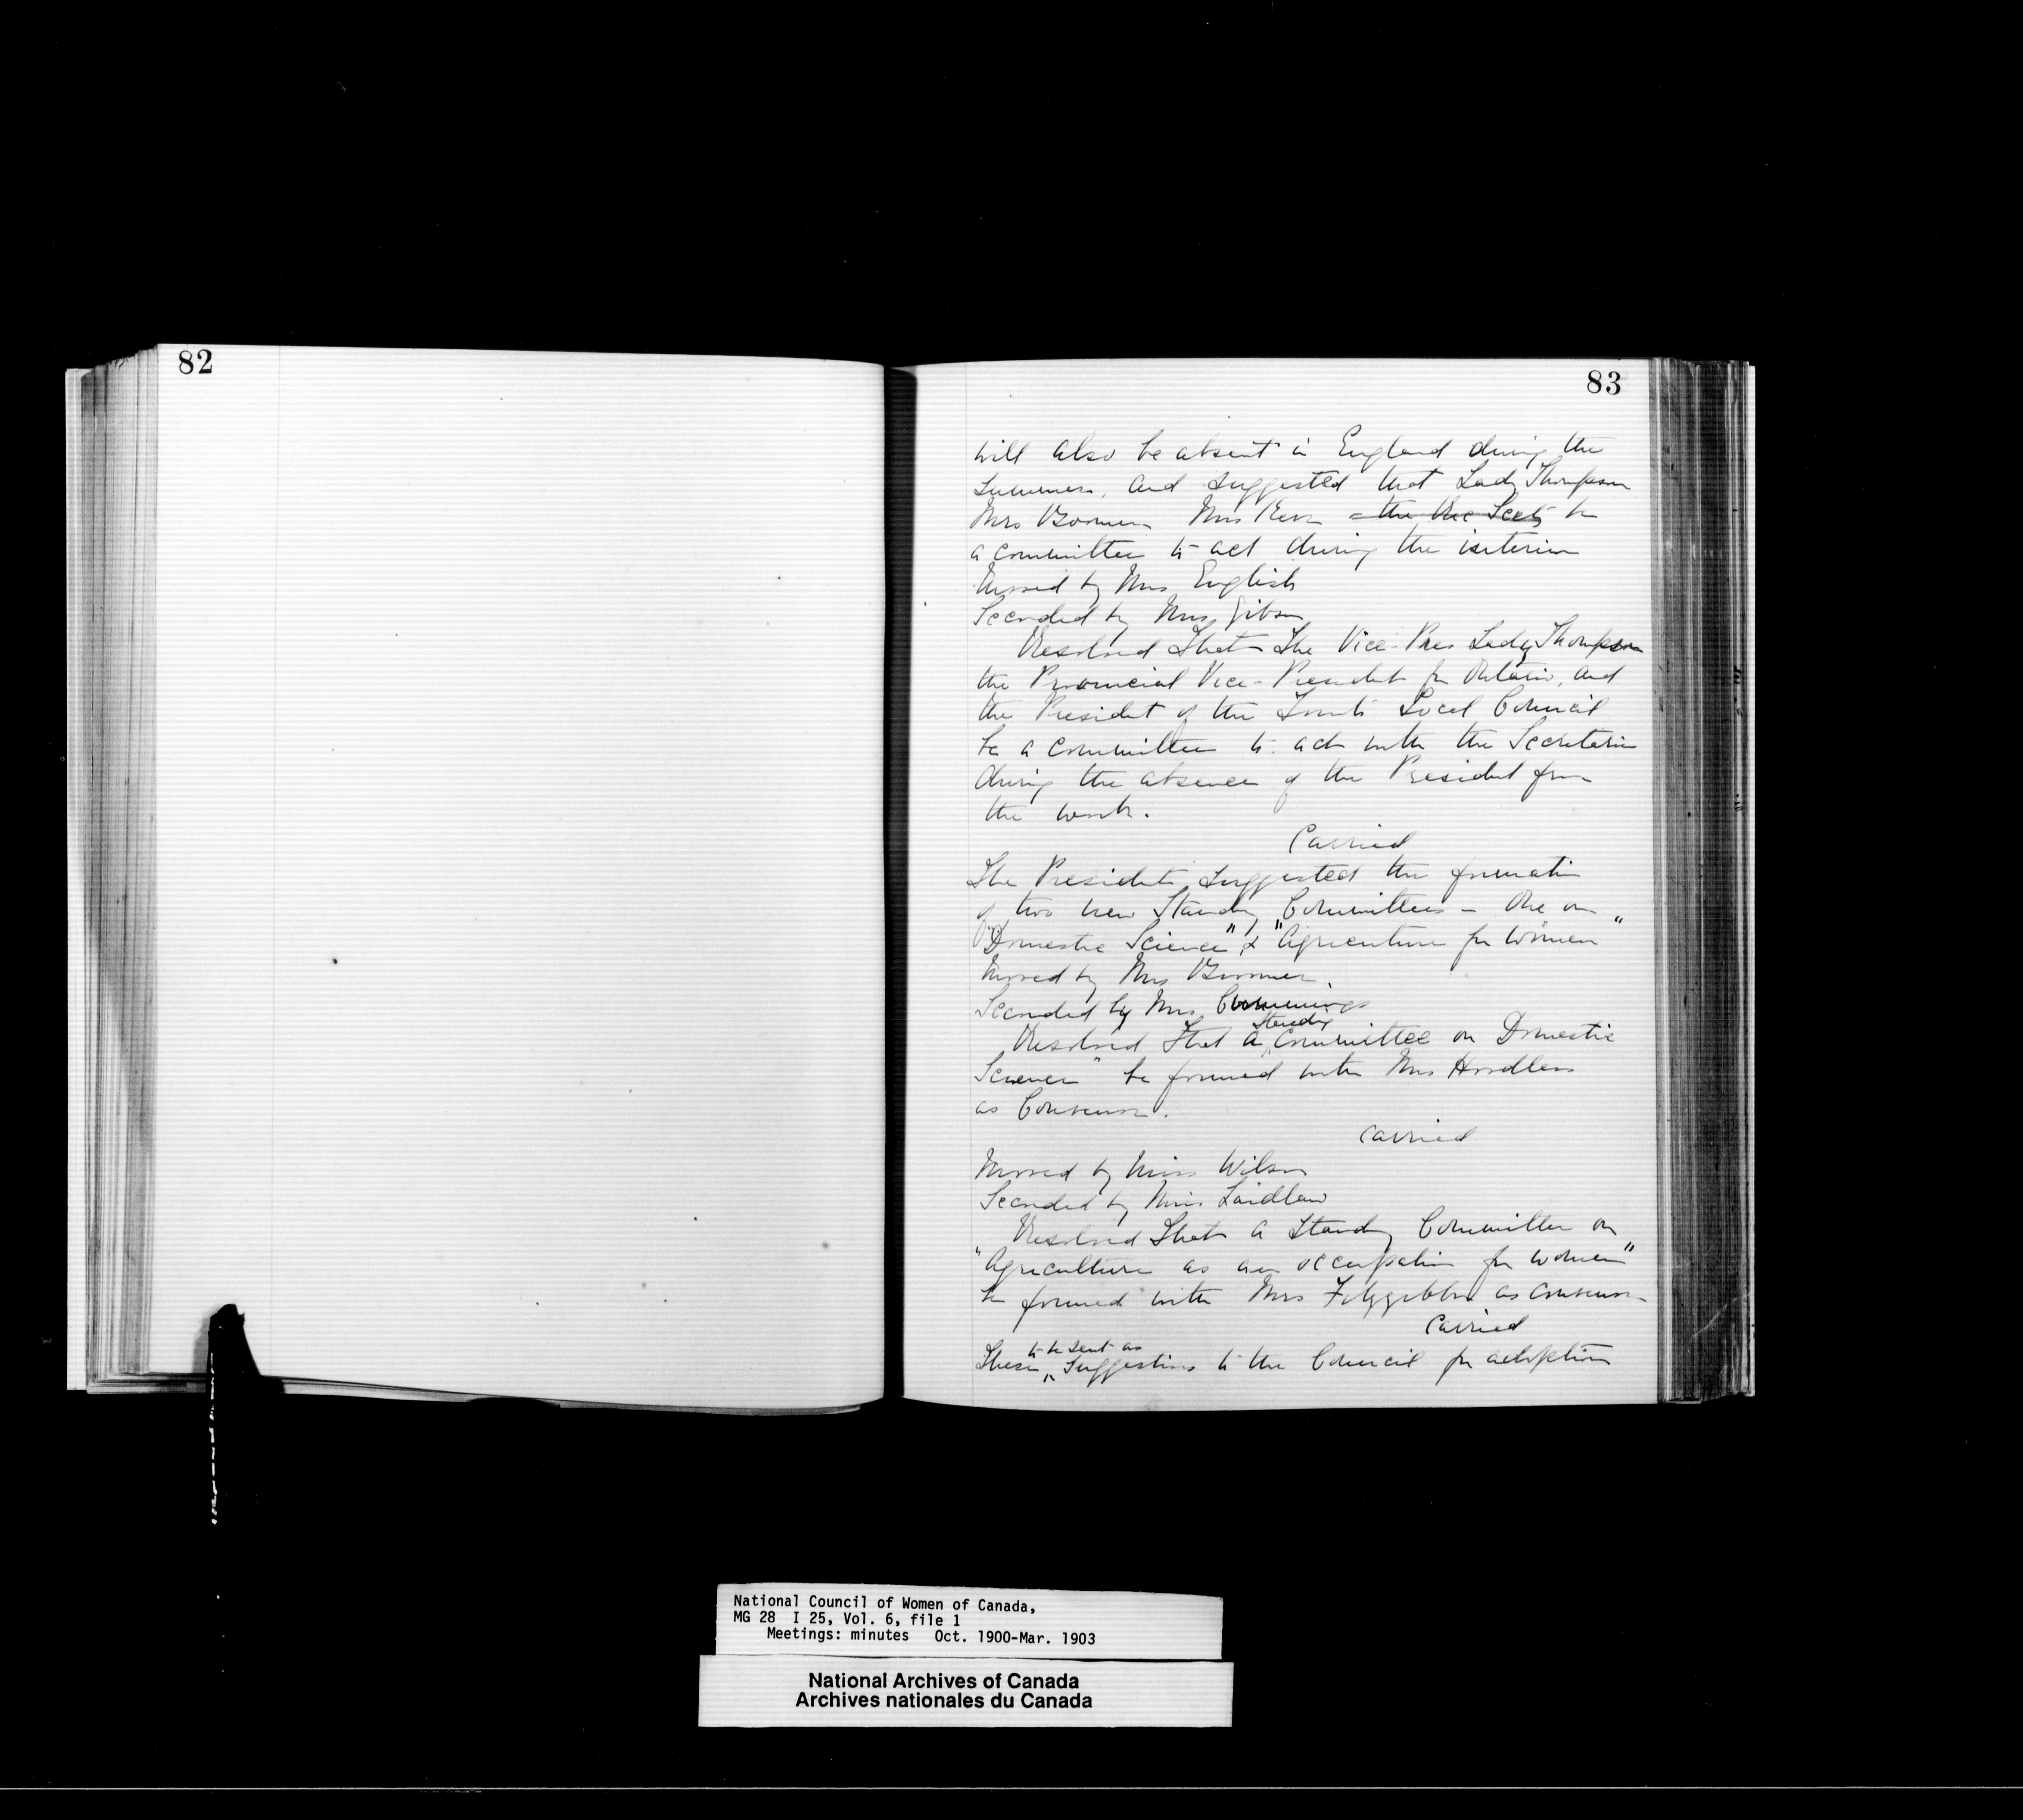 82
83
will also be absent in England during the
Summer, and suggested that Lady Thompson
Mrs Boomer Mrs Kerr the Rec Secty be
a committee to act during the interim
Moved by Mrs English
Seconded by Mrs Gibson
Resolved That The Vice-Pres Lady Thompson
the Provincial Vice-President for Ontario, and
the President of the Toronto Local Council
be a Committee to act with the Secretaries
during the absence of the President from
the work.
Carried
The President suggested the formation
of two new Standing Committees - One on
"Domestic Science" & "Agriculture for Women"
Moved by Mrs Boomer
Seconded by Mrs Cummings
Standing
Resolved That a Committee on Domestic
Science" be formed with Mrs Hoodless
as Convener.
Carried
Moved by Miss Wilson
Seconded by Miss Laidlaw
Resolved That a Standing Committee on
"Agriculture as an occupation for women"
be formed with Mrs Fitzgibbon as convener
Carried
to be sent as
These suggestions to the Council for adoption
National Council of Women of Canada,
MG 28 I 25, Vol. 6, file 1
Meetings: minutes Oct. 1900-Mar. 1903
National Archives of Canada
Archives nationales du Canada